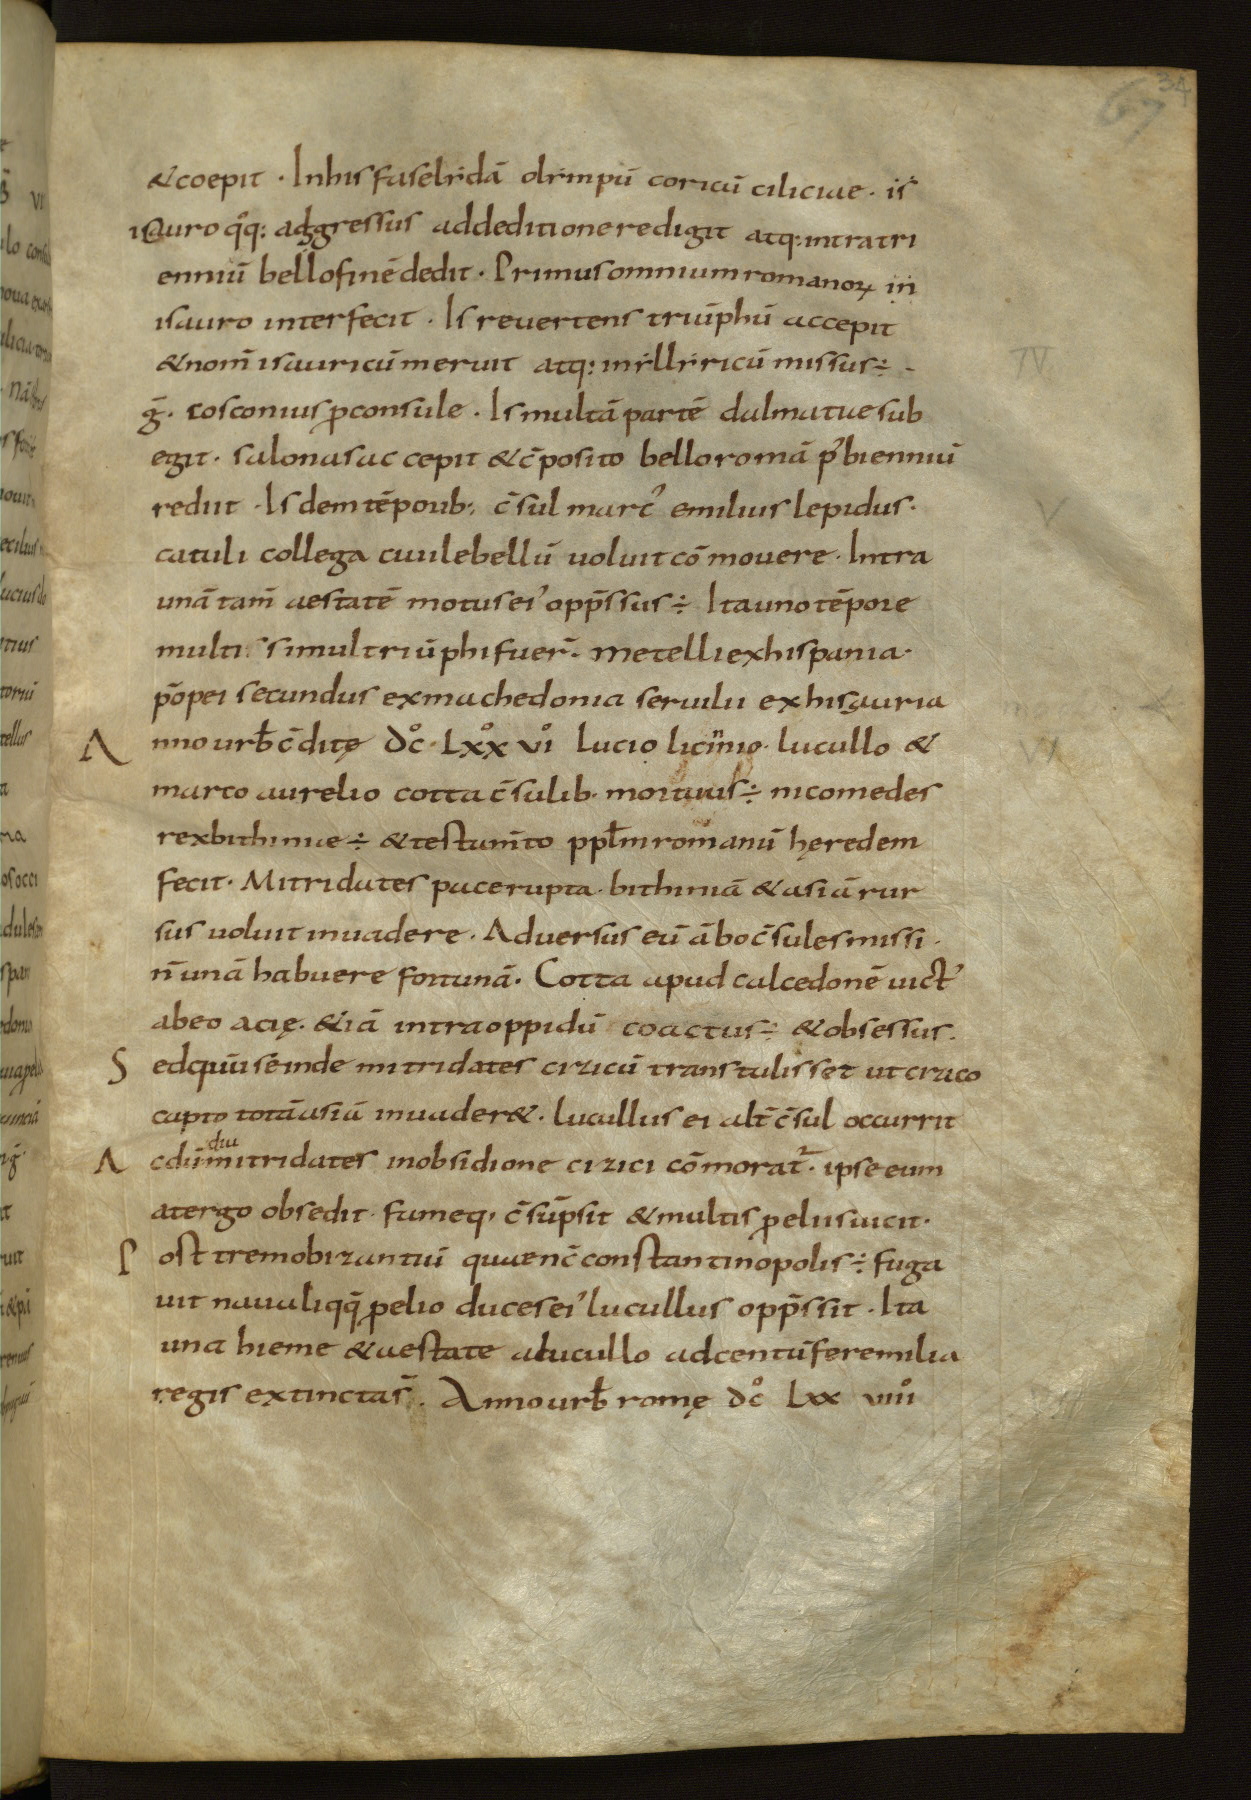 34
67
&coepit · Inhis faselidā olimpū coricū ciliciae · is
isauro qͦq: adgressus addeditione redigit atq: intra tri
enniū bello finē dedit · Primus omnium romanoꝝ in
isauro interfecit · Is revertens triūphū accepit
& nom̄ isauricū meruit atq: inylliricū missus ÷ ·
IV
ḡ · cosconius ꝓconsule · Is multā partē dalmatiae sub
egit · salonas accepit & c̄posito bello romā p' bienniū
rediit · Isdem tēporib; c̄sul marc' emilius lepidus ·
V
catuli collega civile bellū voluit cōmovere · Intra
unā tam̄ aestatē motus ei' opp̄ssus ÷ Ita uno tēpore
multi simul triūphi fuer̄ · metelli exhispania ·
p̄opei secundus exmachedonia servilii exhisauria
Anno urƀ c̄ditę dͦc · Lxͦx vͦi lucio licinnio · lucullo &
VI
marco aurelio cotta c̄sulib · mortuus ÷ nicomedes
rex bithiniae ÷ & testam̄to ppl̄m romanū hęredem
fecit · Mitridates pace rupta · bithiniā & asiā rur
sus voluit invadere · Adversus eū ābo c̄sules missi ·
n̄ unā habuere fortunā · Cotta apud calcedonē vict'
ab eo acię · & iā intra oppidū coactus ÷ & obsessus ·
Sed quū sē inde mitridates cizicū transtulisset ut cizico
capto totā asiā invader& · lucullus ei alt̄ c̄sul occurrit
diu
Ac dū mitridates inobsidione cizici cōmorat᷑ · ipse eum
atergo obsedit · fameq; c̄sūpsit & multis ꝓeliis vicit ·
Post tremo bizantiū quae nc̄ constantinopolis ÷ fuga
vit navali qq̄ ꝓelio duces ei' lucullus opp̄ssit · Ita
una hieme & aestate alucullo adcentū fere milia
regis extincta s̄ · Anno urƀ romę dͦc Lxx viiiͦi